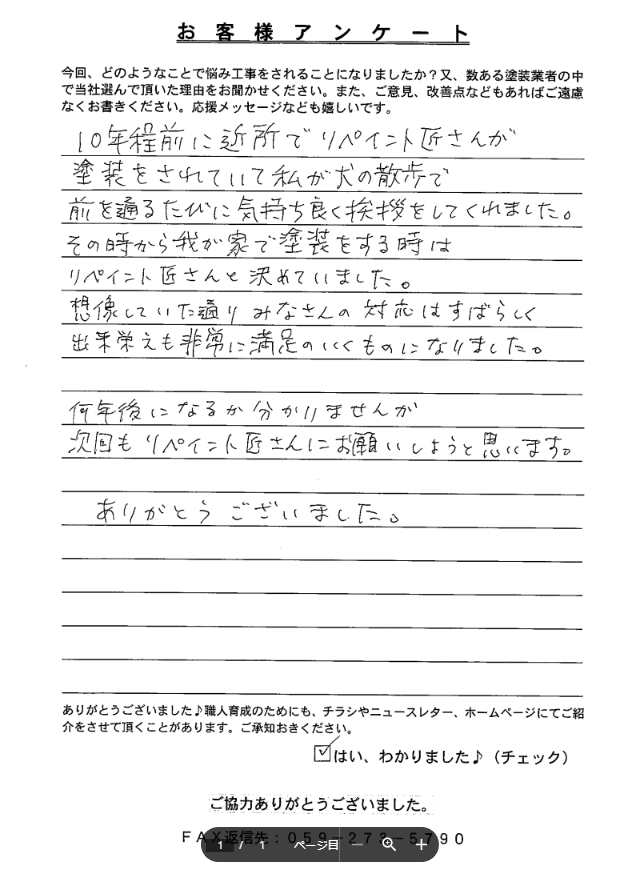 お客様アンケート
今回、どのようなことで悩み工事をされることになりましたか？又、数ある塗装業者の中
で当社選んで頂いた理由をお聞かせください。また、ご意見、改善点などもあればご遠慮
なくお書きください。応援メッセージなども嬉しいです。
10年程前に近所でリペイント匠さんが
塗装をされていて私が犬の散歩で
前を通るたびに気持ち良く挨拶をしてくれました。
その時から我が家で塗装をする時は
リペイント匠さんと決めていました。
想像していた通りみなさんの対応はすばらしく
出来栄えも非常に満足のいくものになりました。
何年後になるか分かりませんが
次回もリペイント匠さんにお願いしようと思います。
ありがとうございました。
ありがとうございました♪職人育成のためにも、チラシやニュースレター、ホームページにてご紹
介をさせて頂くことがあります。ご承知おきください。
はい、わかりました♪（チェック）
ご協力ありがとうございました。
FAX返信先：059－273－5790
1 / 1 ページ目